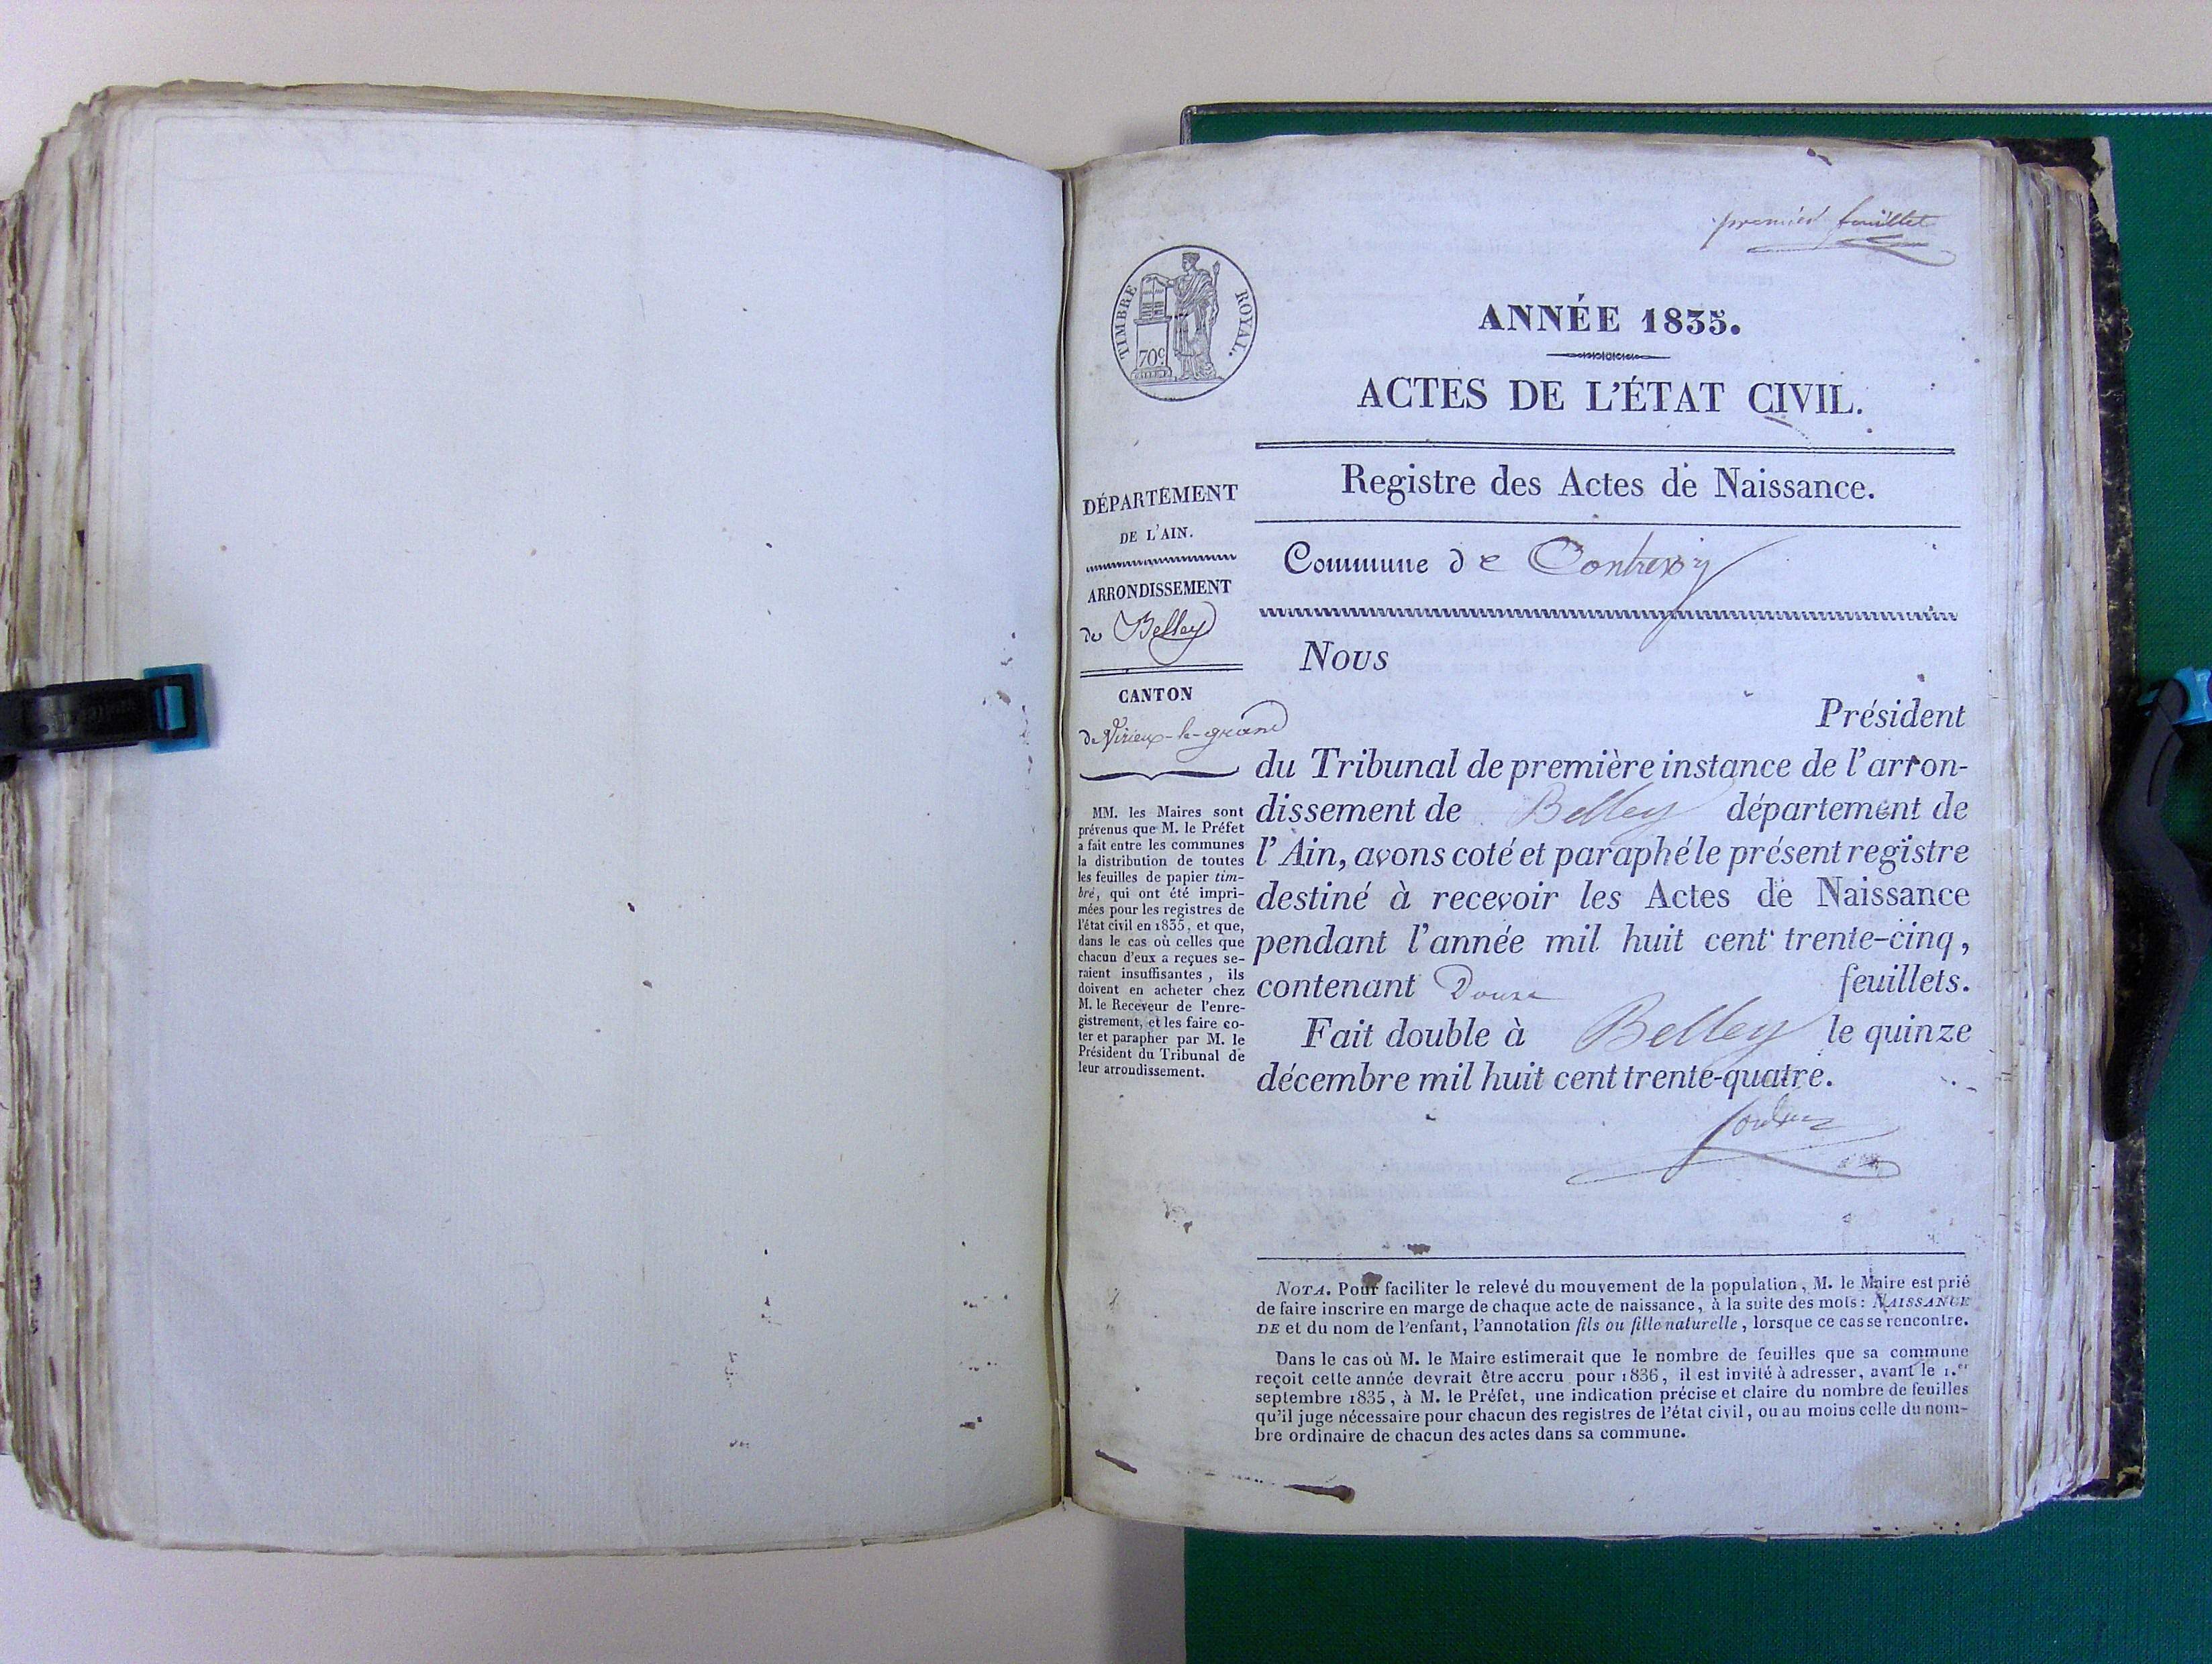 premier feuillet
TIMBRE ROYAL.
70c
ANNÉE 1835.
ACTES DE L'ÉTAT CIVIL.
Registre des Actes de Naissance.
Commune de
DÉPARTEMENT
DE L'AIN.
ARRONDISSEMENT
de Belley
CANTON
de Virieu-le-grand
MM. les Maires sont
prévenus que M. le Préfet
a fait entre les communes
la distribution de toutes
les feuilles de papier tim-
bré, qui ont été impri-
mées pour les registres de
l'état civil en 1835, et que,
dans le cas où celles que
chacun d'eux a reçues se-
raient insuffisantes, ils
doivent en acheter chez
M. le Receveur de l'enre-
gistrement, et les faire co-
ter et parapher par M. le
Président du Tribunal de
leur arrondissement.
Nous
Président
du Tribunal de première instance de l'arron-
dissement de Belley département de
l'Ain, avons coté et paraphé le présent registre
destiné à recevoir les Actes de Naissance
pendant l'année mil huit cent trente-cinq,
contenant Douze feuillets.
Fait double à Belley le quinze
décembre mil huit cent trente-quatre.
NOTA. Pour faciliter le relevé du mouvement de la population, M. le Maire est prié
de faire inscrire en marge de chaque acte de naissance, à la suite des mots: NAISSANCE
DE et du nom de l'enfant, l'annotation fils ou fille naturelle, lorsque ce cas se rencontre.
Dans le cas où M. le Maire estimerait que le nombre de feuilles que sa commune
reçoit cette année devrait être accru pour 1836, il est invité à adresser, avant le 1.er
septembre 1835, à M. le Préfet, une indication précise et claire du nombre de feuilles
qu'il juge nécessaire pour chacun des registres de l'état civil, ou au moins celle du nom-
bre ordinaire de chacun des actes dans sa commune.